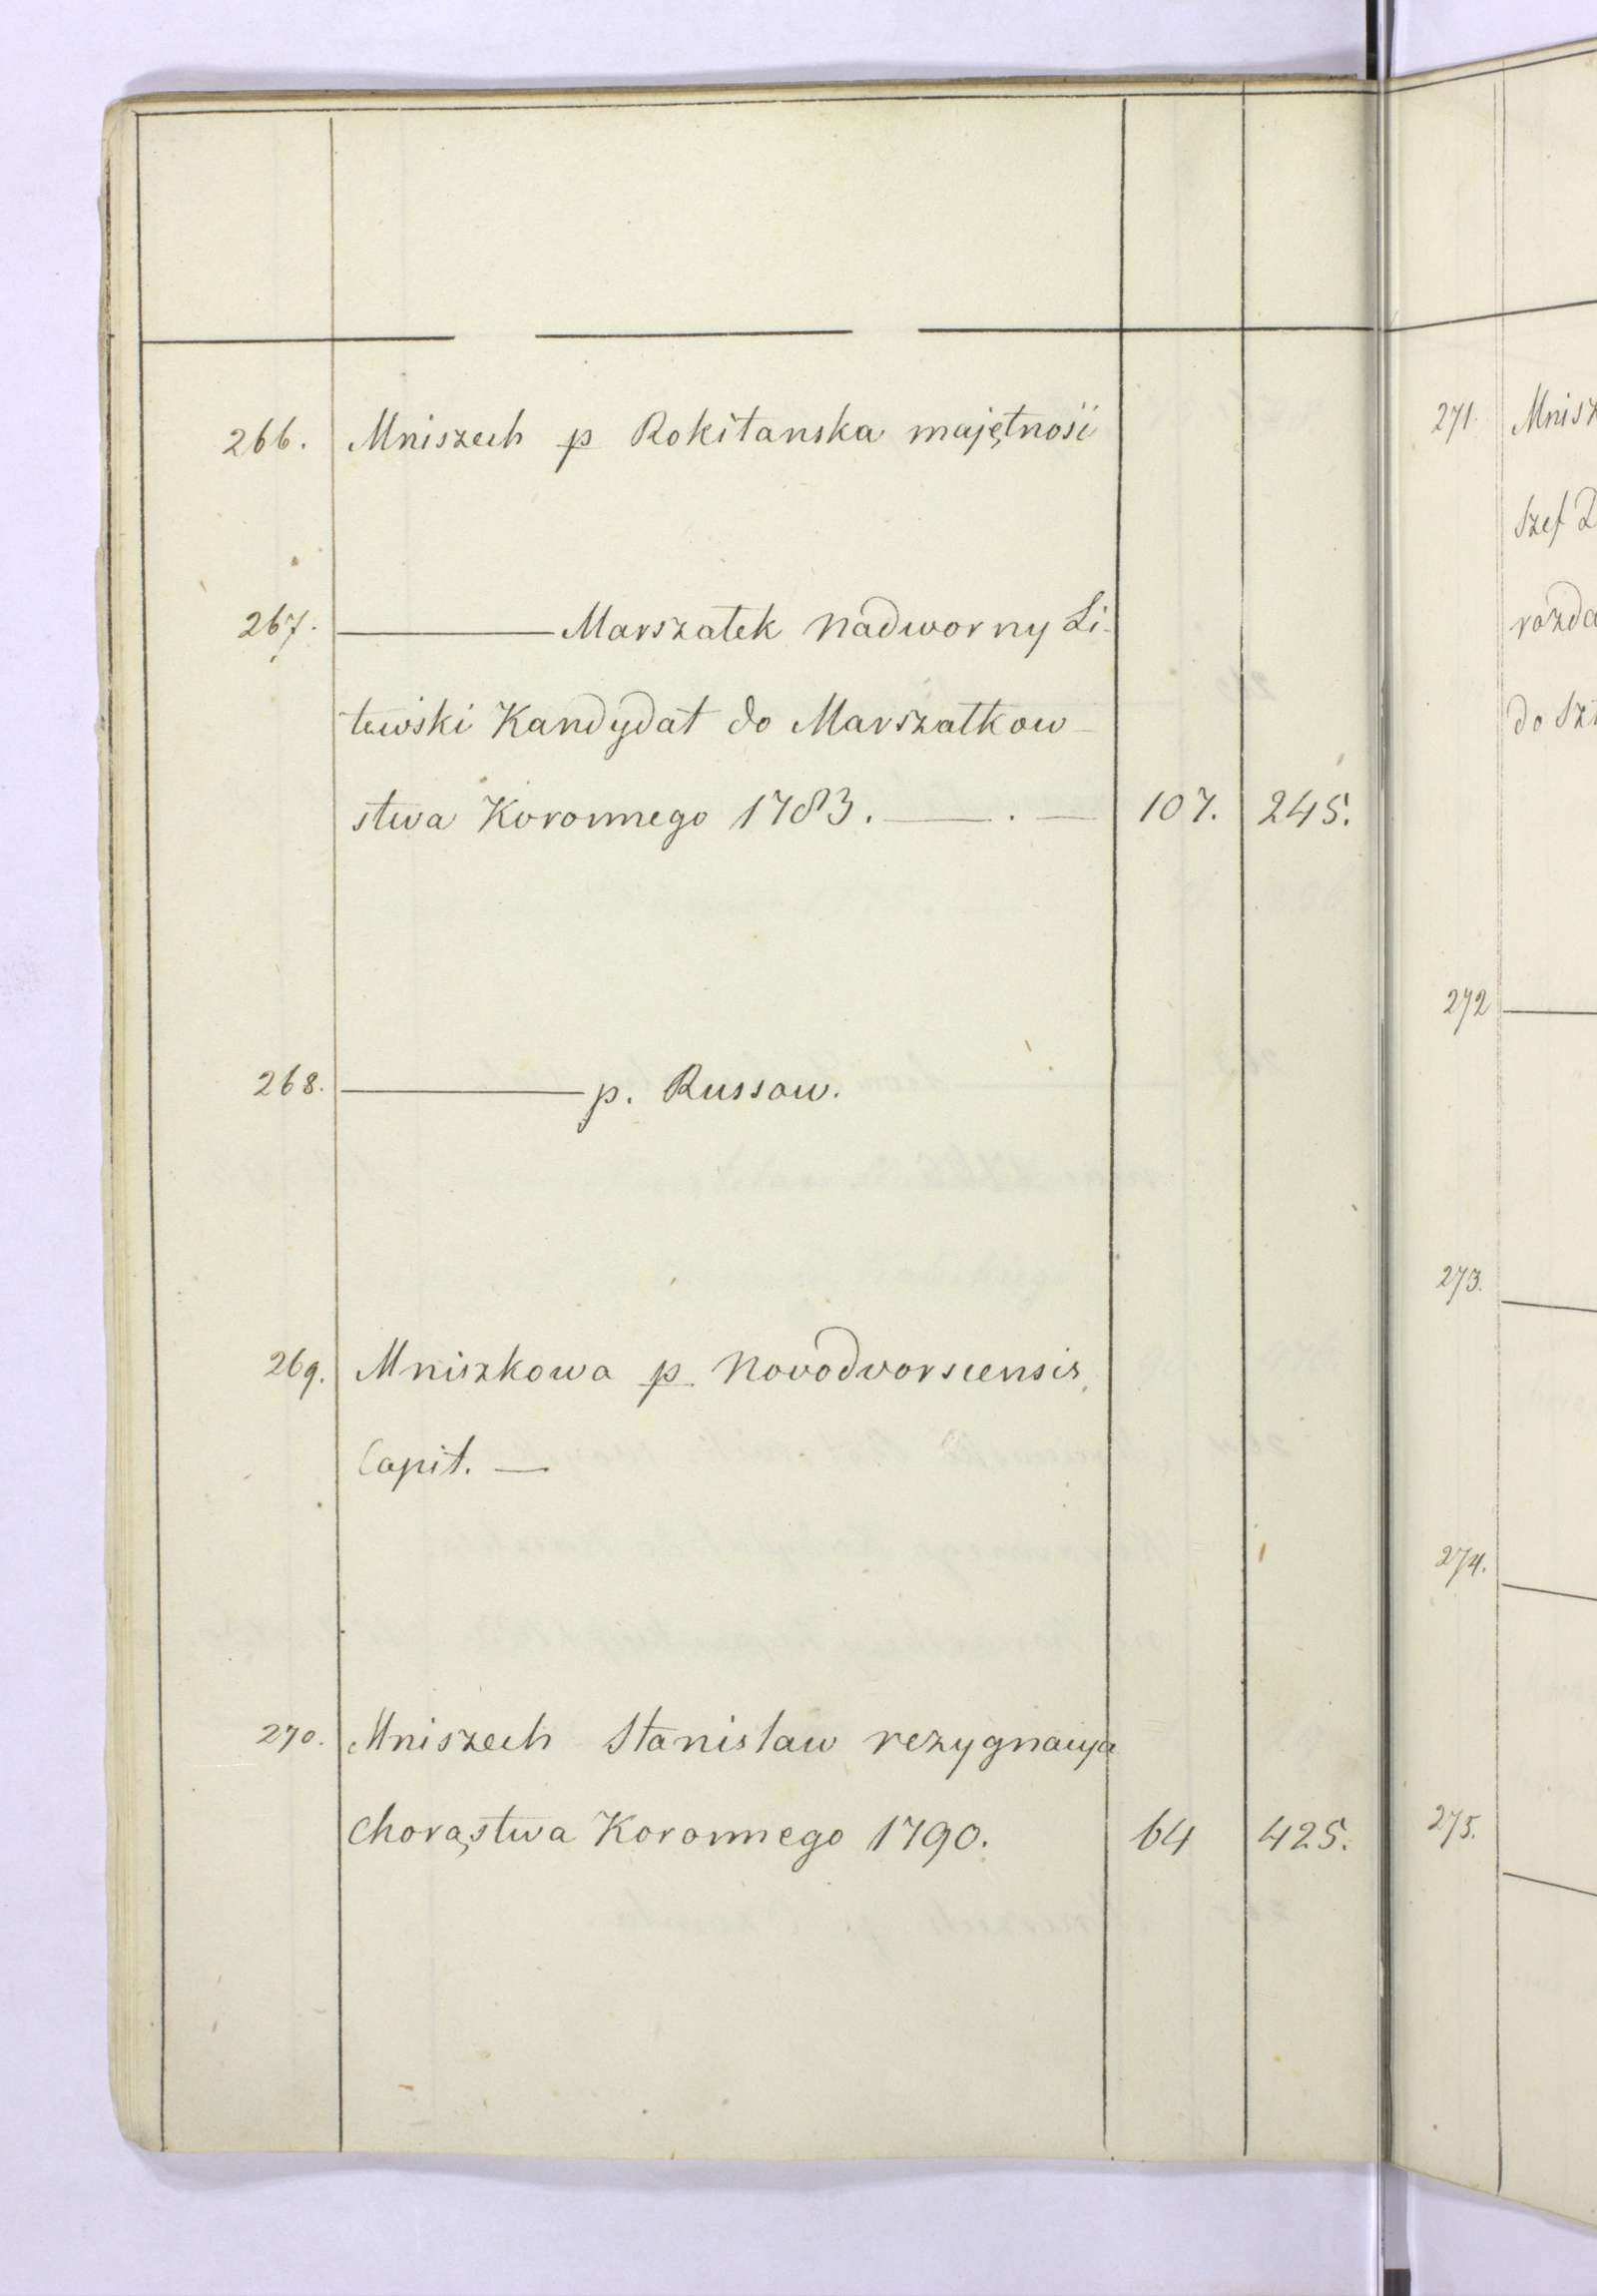 266. Mniszech p Rokitanska majętność
267. ——— Marszałek Nadworny Li-
tewski Kandydat do Marszałkow-
stwa Koronnego 1783. —— . — 107. 245.
268. ——— p. Russow.
269. Mniszkowa p Novodvorscensis
Capit. —
270. Mniszech Stanisław rezygnacya
Chorąstwa Koronnego 1790. 64 425.
271. Mnisz
Szef
rozda
do Sz
272
273.
274.
275.